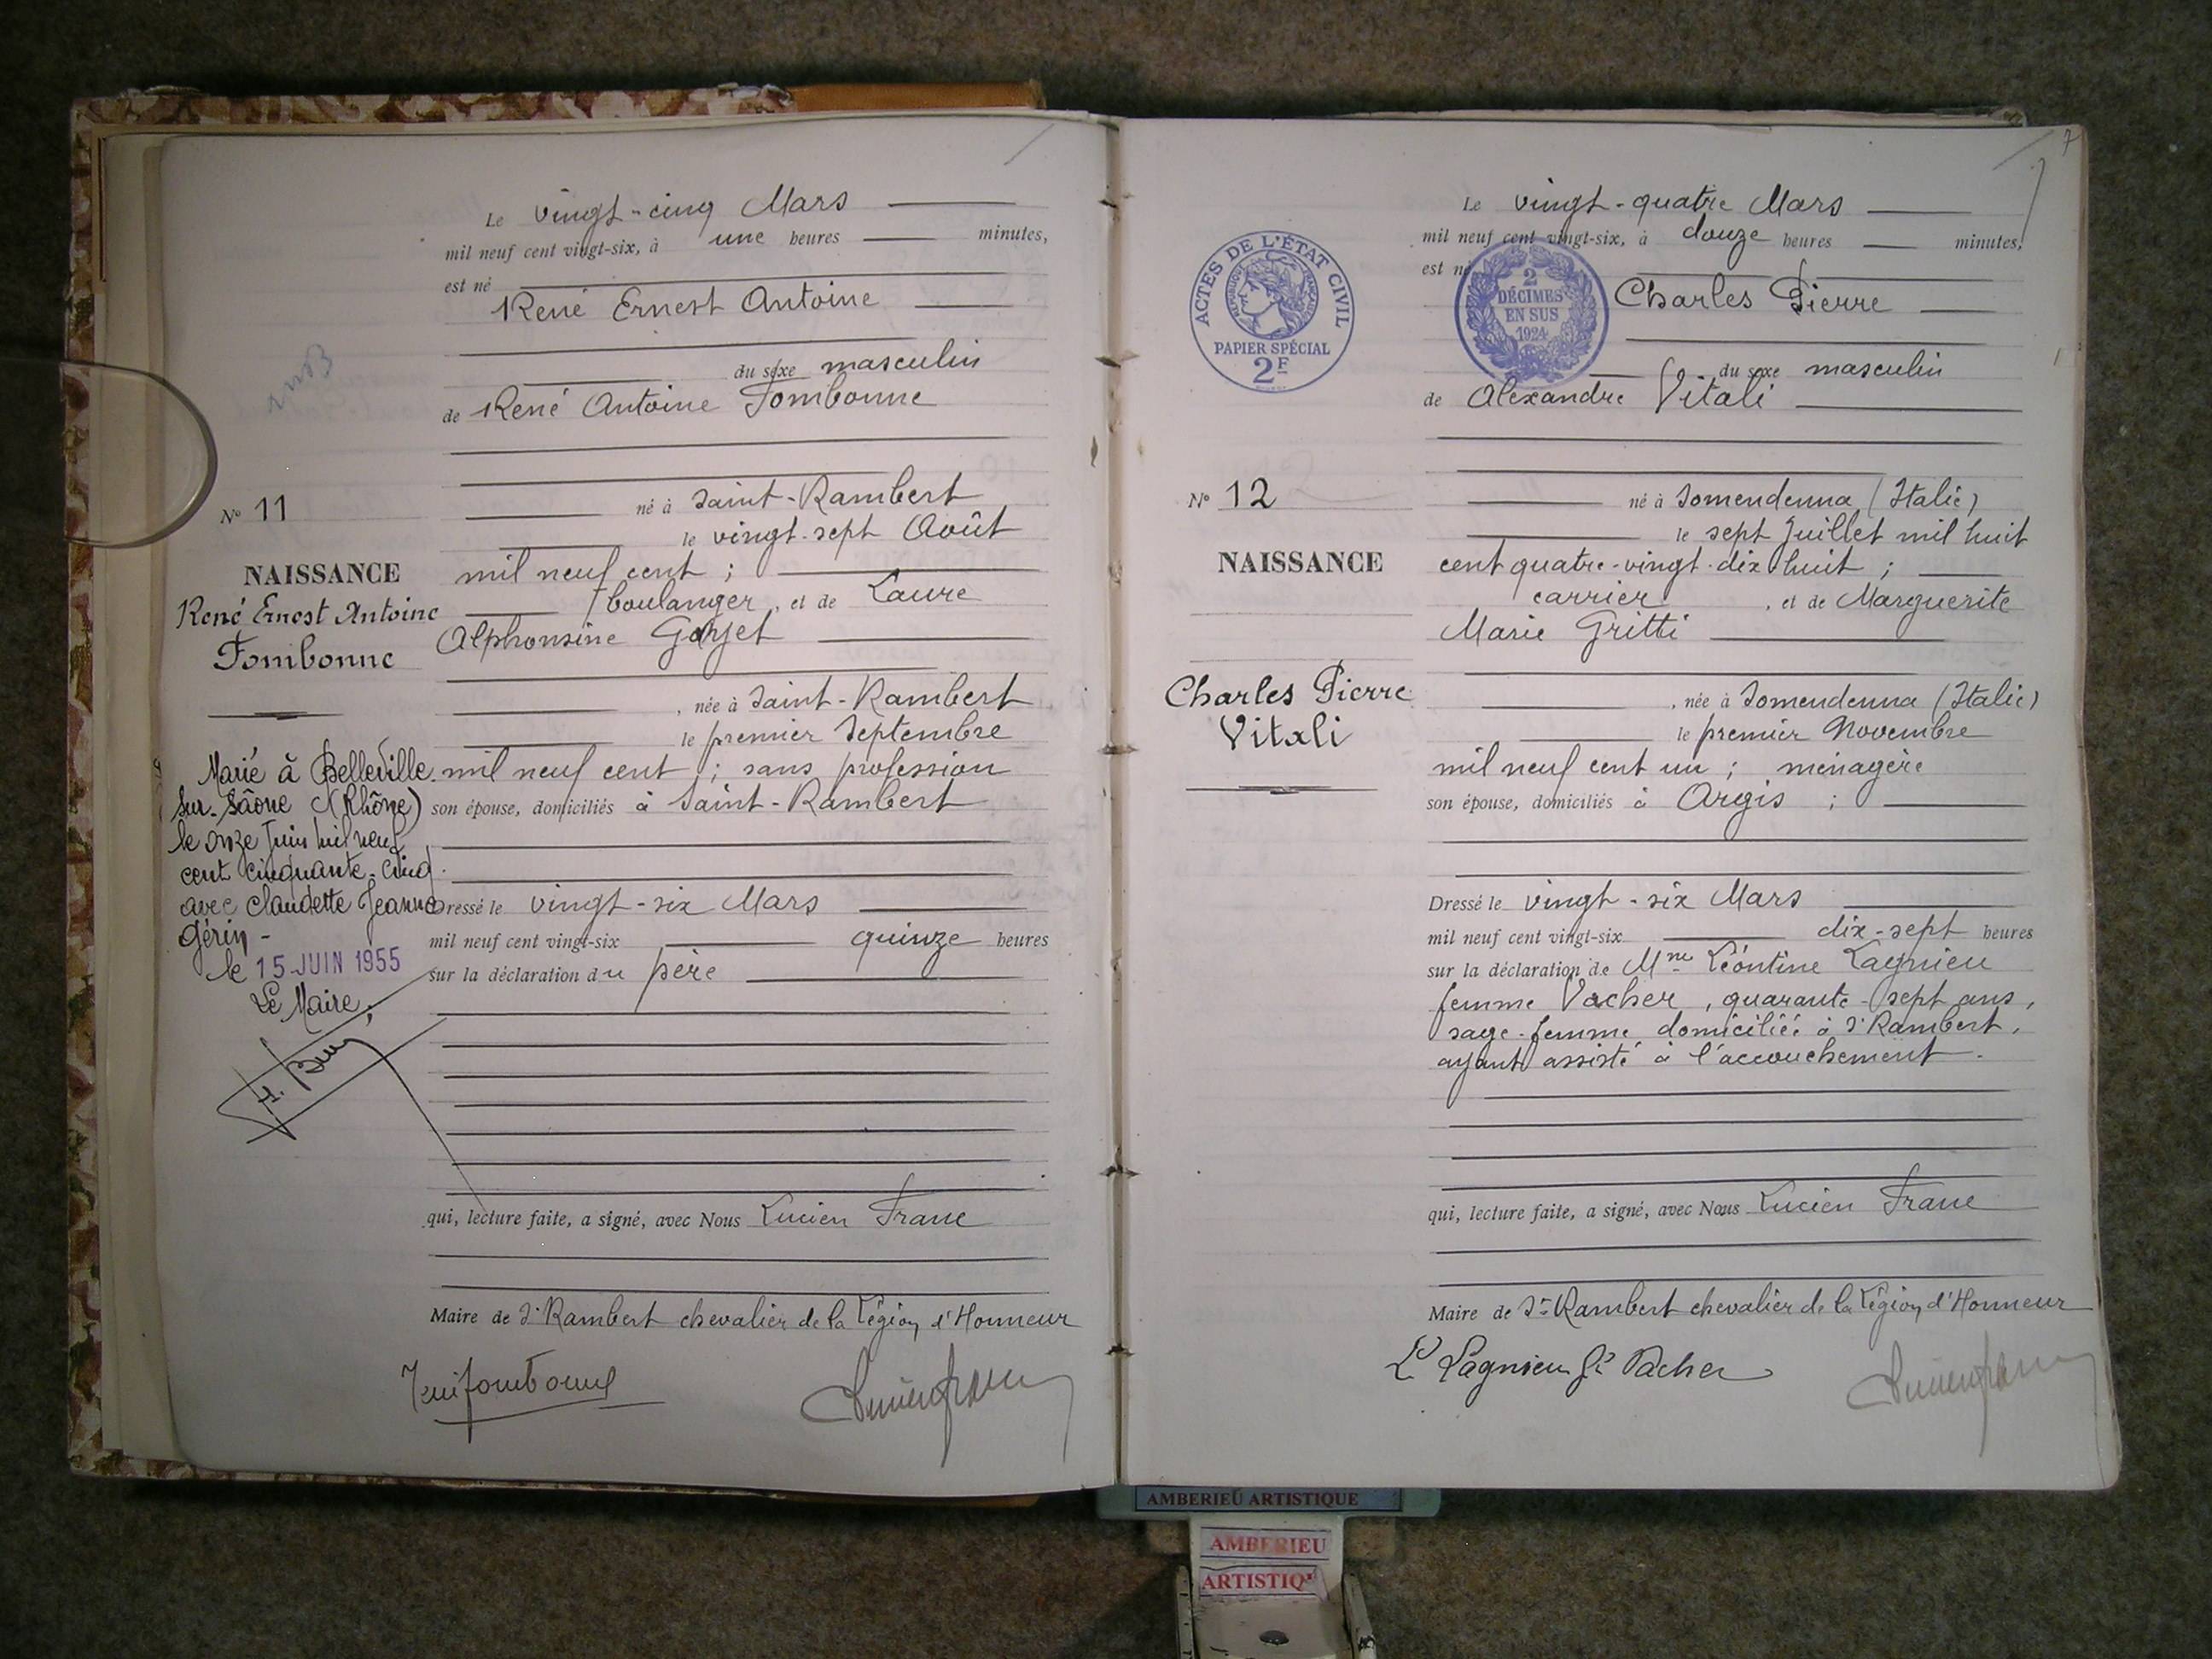 Le vingt-cinq Mars
mil neuf cent vingt-six, à une heures minutes,
est né
René Ernest Antoine
du sexe masculin
de René Antoine Fombonne
N° 11
né à Saint-Rambert
le vingt-sept Août
NAISSANCE
mil neuf cent ;
René Ernest Antoine
Fombonne
boulanger, et de Laure
Alphonsine
, née à Saint-Rambert
le premier Septembre
mil neuf cent ; sans profession
son épouse, domiciliés à Saint-Rambert
Marié à Belleville-
sur-Saône (Rhône)
le onze Juin mil neuf
cent cinquante-cinq
avec Claudette Jeanne
Gérin -
le 15 JUIN 1955
Le Maire,
Dressé le vingt-six Mars
mil neuf cent vingt-six quinze heures
sur la déclaration du père
qui, lecture faite, a signé, avec Nous Lucien Franc
Maire de St Rambert chevalier de la Légion d'Honneur
7
ACTES DE L'ÉTAT CIVIL
RÉPUBLIQUE FRANÇAISE
PAPIER SPÉCIAL
2F
2
DÉCIMES
EN SUS
1924
Le vingt-quatre Mars
mil neuf cent vingt-six, à douze heures minutes,
est né
Charles Pierre
du sexe masculin
de Alexandre Vitali
N° 12
né à Somendenna (Italie)
le sept Juillet mil huit
NAISSANCE
cent quatre-vingt-dix huit ;
carrier, et de Marguerite
Marie Gritti
Charles Pierre
Vitali
, née à Somendenna (Italie)
le premier Novembre
mil neuf cent un ; ménagère
son épouse, domiciliés à Argis ;
Dressé le vingt-six Mars
mil neuf cent vingt-six dix-sept heures
sur la déclaration de Mme Léontine Lagnieu
femme Vacher, quarante-sept ans,
sage-femme domiciliée à St Rambert,
ayant assisté à l'accouchement.
qui, lecture faite, a signé, avec Nous Lucien Franc
Maire de St Rambert chevalier de la Légion d'Honneur
L Lagnieu fe Vacher
AMBERIEU ARTISTIQUE
AMBERIEU
ARTISTIQ